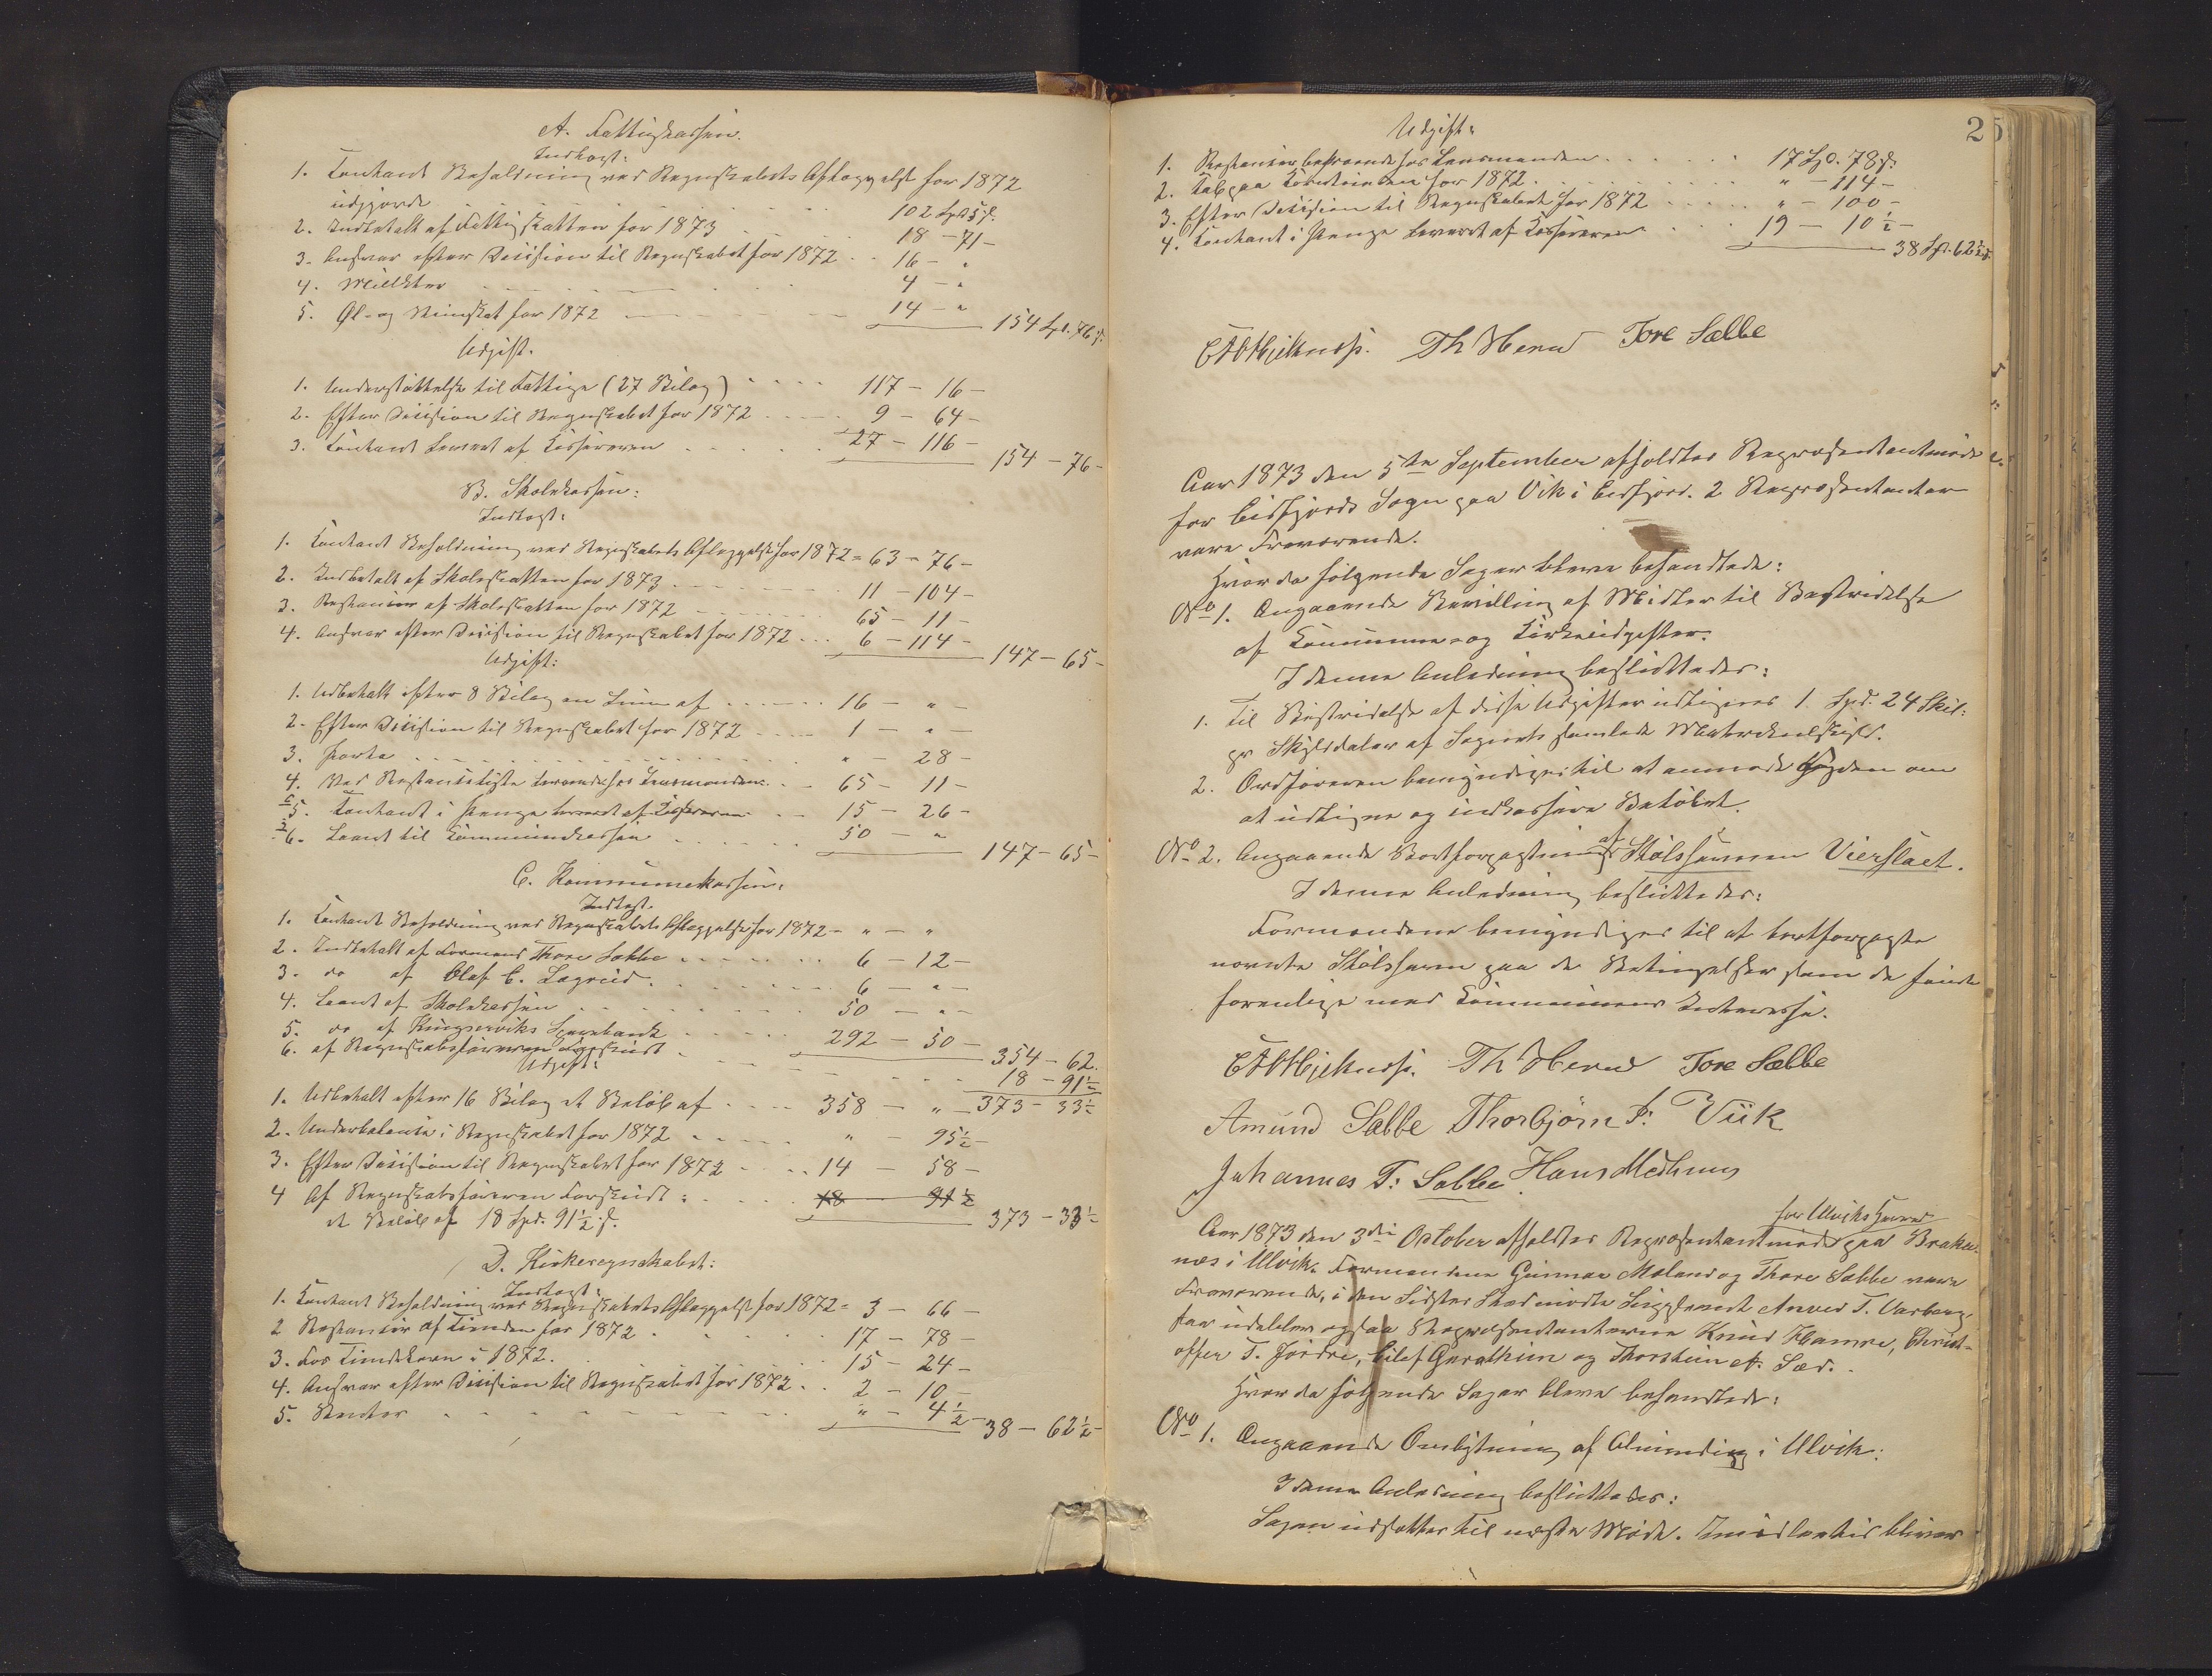 A. Fattigkassen.
Indtægt:
1. Contant Beholdning ved Regnskabets Aflæggelse for 1872
udgjorde 102 Spd 5 s.
2. Indbetalt af Fattigskatten for 1873 18 – 71 –
3. Ansvar efter Decision til Regnskabet for 1872 . . 16 – "
4. Mulkter 4 – "
5. Øl- og Viinskat for 1872 14 – "
154 Spd. 76 s.
Udgift.
1. Understøttelse til Fattige (27 Bilag) 117 – 16 –
2. Efter Decision til Regnskabet for 1872 9 – 64 –
3. Contant leveret af Kassereren 27 – 116 –
154 – 76 –
B. Skolekassen:
Indtægt:
1. Contant Beholdning ved Regnskabets Aflæggelse for 1872 = 63 – 76 –
2. Indbetalt af Skoleskatten for 1873 11 – 104 –
3. Restancer af Skoleskatten for 1872 65 – 11 –
4. Ansvar efter Decision til Regnskabet for 1872 . . . 6 – 114 –
147 – 65 –
Udgift:
1. Udbetalt efter 8 Bilag en Sum af 16 – " –
2. Efter Decision til Regnskabet for 1872 1 – " –
3. Porto " – 28 –
4. Ved Restanceliste beroende hos Lensmanden 65 – 11 –
5. Contant i Penge leveret af Kassereren 15 – 26 –
6. Laant til Kommunekassen 50 – "
147 – 65 –
C. Kommunekassen:
Indtægt.
1. Contant Beholdning ved Regnskabets Aflæggelse for 1872 – " – "
2. Indbetalt af Formand Thore Sæbbe 6 – 12 –
3. do af Olaf E. Lægreid 6 – " –
4. Laant af Skolekassen 50 – " –
5. do af Kingserviks Sparebank 292 – 50 –
354 – 62.
6. af Regnskabsføreren Forskudt 18 – 91½
373 – 33½
Udgift:
1. Udbetalt efter 16 Bilag et Beløb af 358 – " –
2. Underbalance i Regnskabet for 1872 " – 95½ –
3. Efter Decision til Regnskabet for 1872 14 – 58 –
4 Af Regnskabsføreren Forskudt: 18 91½
et Beløb af 18 Spd. 91½ s. 373 – 33½
D. Kirkeregnskabet:
Indtægt:
1. Contant Beholdning ved Regnskabets Aflæggelse for 1872 = 3 – 66 –
2 Restancer af Tienden for 1872 17 – 78 –
3. For Tiendekorn i 1872. 15 – 24 –
4. Ansvar efter Decision til Regnskabet for 1872 . . 2 – 10 –
5. Renter " – 4½
38 – 62½ –
25
Udgift:
1. Restancer beroende hos Lensmanden 17 Spd. 78 s.
2. Tab paa Korntienden for 1872 " – 114 –
3. Efter Decision til Regnskabet for 1872 " – 100 –
4. Contant i Penge leveret af Kassereren 19 – 10½ –
38 Spd. 62½ s.
Th Hereid Tore Sæbbe
Aar 1873 den 5te September afholdtes Repræsentantmøde
for Eidfjords Sogn paa Vik i Eidfjord. 2 Repræsentanter
vare Fraværende.
Hvor da følgende Sager bleve behandlede:
No 1. Angaaende Bevilling af Midler til Bestridelse
af Kommune- og Kirkeudgifter.
I denne Anledning besluttedes:
1. Til Bestridelse af disse Udgifter udlignes 1 Spd. 24 Skil:
pr Skylddaler af Sognets samlede Matrikulskyld.
2. Ordføreren bemyndiges til at anmode Fogden om
at udligne og indkassere Beløbet.
No 2. Angaaende Bortforpagtning af Stølshavnen Vierslaet.
I denne Anledning besluttedes:
Formændene bemyndiges til at bortforpagte
nævnte Stølshavn paa de Betingelser som de finde
forenlige med Kommunens Interesse.
Th Hereid Tore Sæbbe
Amund Sæbbe Thorbjörn P: Viik
Johannes T: Sæbbe Hans Medhuus
Aar 1873 den 3die October afholdtes Repræsentantmøde for Ulviks Herred paa Braka-
næs i Ulvik. Formændene Gunnar Mæland og Thore Sæbbe vare
Fraværende, i den Sidstes Sted mødte Suppleant Anved T. Varberg,
saa udebleve ogsaa Repræsentanterne Knud Hamre, Christ-
offer T. Hjørdre, Eilef Gjerathun og Thorstein A. Sæd.
Hvor da følgende Sager bleve behandlede:
No 1. Angaaende Ombytning af Alminding i Ulvik:
I denne Anledning besluttedes:
Sagen udsættes til næste Møde. Imidlertid bliver